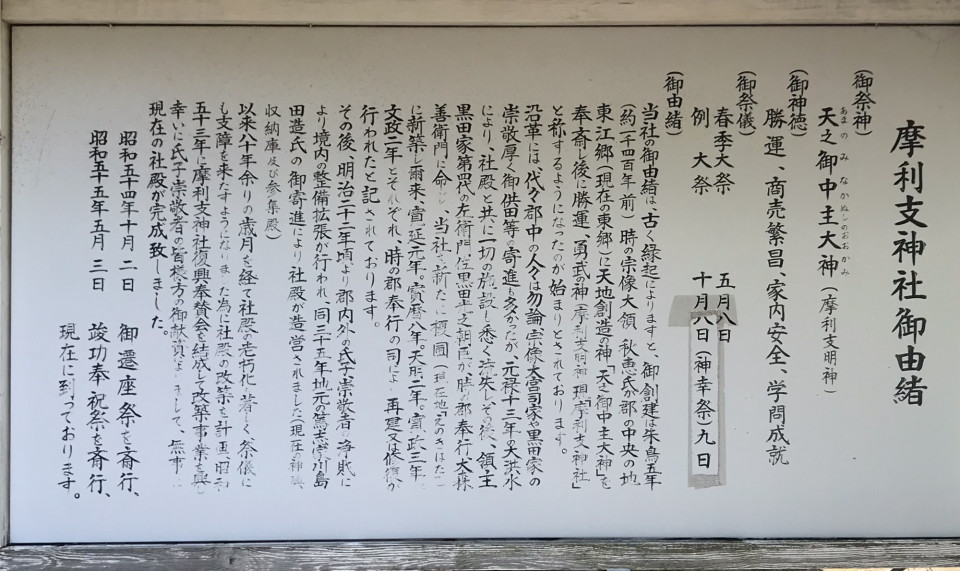 摩利支神社御由緒
(御祭神)
あまのみなかぬしのおおかみ
天之御中主大神(摩利支明神)
(御神徳)
勝運、商売繁昌、家内安全、学問成就
(御祭儀)
春季大祭 五月八日
例大祭 十月八日(神幸祭)九日
(御由緒)
当社の御由緒は、古く縁起によりますと、御創建は朱鳥五年
(約一千四百年前)時の宗像大領 秋恵氏が郡の中央の地
東江郷(現在の東郷)に天地創造の神「天之御中主大神」を
奉斎し後に勝運、勇武の神「摩利支明神」現「摩利支神社」
と称するようになったのが始まりとされております。
沿革には、代々郡中の人々は勿論、宗像大宮司家や黒田家の
崇敬厚く御供田等の寄進も多かったが、元禄十三年の大洪水
により、社殿と共に一切の施設、悉く流失し、その後、領主
黒田家第四代の左衛門佐黒田 之朝臣が時の郡奉行大森
善衛門に命じ 当社を新たに榎園(現在地 えのきばた)
に新築し爾来、寛延元年。寶暦八年。天明二年。寛政三年。
文政二年とそれぞれ、時の郡奉行の司により再建又は修復が
行われたと記されております。
その後、明治二十二年頃より郡内外の氏子崇敬者の海賑に
より境内の整備拡張が行われ、同三十五年地元の篤志 川島
田造氏の御寄進により社殿が造営されました(現在の神輿
収納庫及び参集殿)
以来八十年余りの歳月を経て社殿の老朽化 著しく祭儀に
も支障を来たすようになりました為に社殿の改築を計画、昭和
五十三年に摩利支神社復興奉賛会を結成して改築事業を興し
幸いに氏子崇敬者の皆様方の御献資によりまして、無事に
現在の社殿が完成致しました。
昭和五十四年十月二日 御遷座祭を斎行、
昭和五十五年五月三日 竣功奉祝祭を斎行、
現在に到っております。